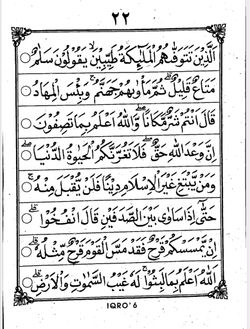 ٢٢
الَّذِيْنَ تَتَوَفّٰىهُمُ الْمَلٰۤىِٕكَةُ طَيِّبِيْنَ يَقُوْلُوْنَ سَلٰمٌ
مَتَاعٌ قَلِيْلٌ ثُمَّ مَأْوٰىهُمْ جَهَنَّمُ ۗ وَبِئْسَ الْمِهَادُ
قَالَ اَنْتُمْ شَرٌّ مَّكَانًا ۚ وَاللّٰهُ اَعْلَمُ بِمَا تَصِفُوْنَ
اِنَّ وَعْدَ اللّٰهِ حَقٌّ ۖ فَلَا تَغُرَّنَّكُمُ الْحَيٰوةُ الدُّنْيَا
وَمَنْ يَّبْتَغِ غَيْرَ الْاِسْلَامِ دِيْنًا فَلَنْ يُّقْبَلَ مِنْهُ ۚ
حَتّٰى اِذَا سَاوٰى بَيْنَ الصَّدَفَيْنِ قَالَ انْفُخُوْا ۗ
اِنْ يَّمْسَسْكُمْ قَرْحٌ فَقَدْ مَسَّ الْقَوْمَ قَرْحٌ مِّثْلُهٗ ۗ
اللّٰهُ اَعْلَمُ بِمَا لَبِثُوْا ۚ لَهٗ غَيْبُ السَّمٰوٰتِ وَالْاَرْضِ ۗ
IQRO' 6